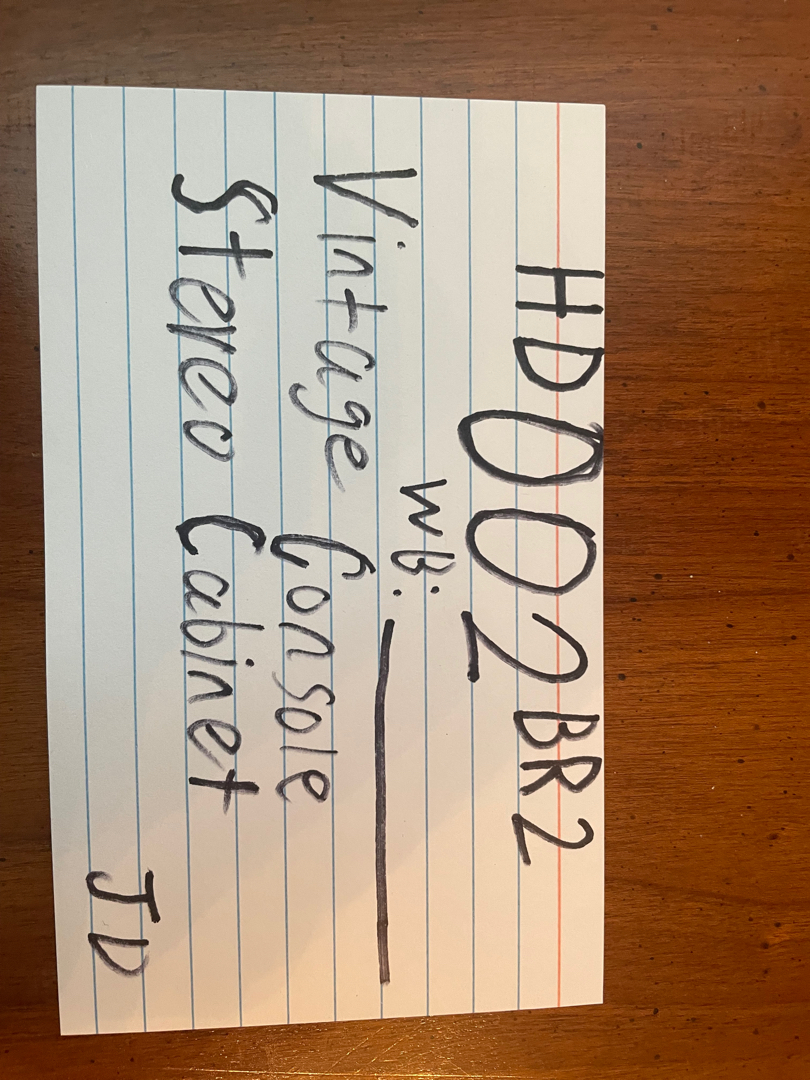 HD002BR2
WB: ______
Vintage Console
Stereo Cabinet
JD